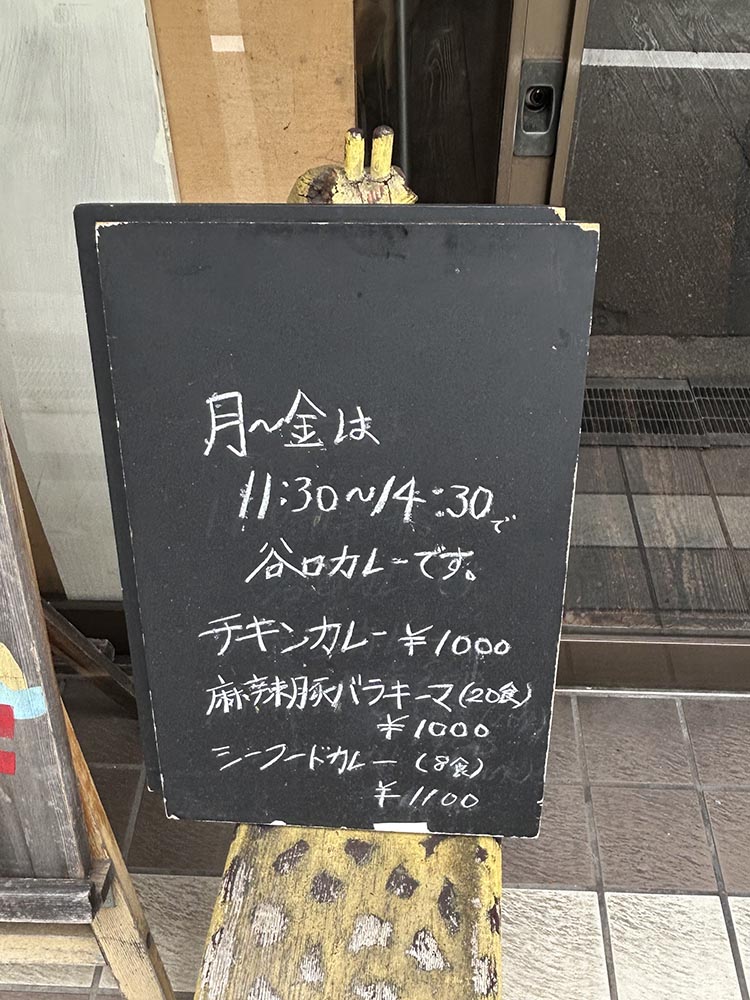 月〜金は
11:30〜14:30で
谷口カレーです。
チキンカレー ¥1000
麻辣豚バラキーマ(20食)
¥1000
シーフードカレー (8食)
¥1100